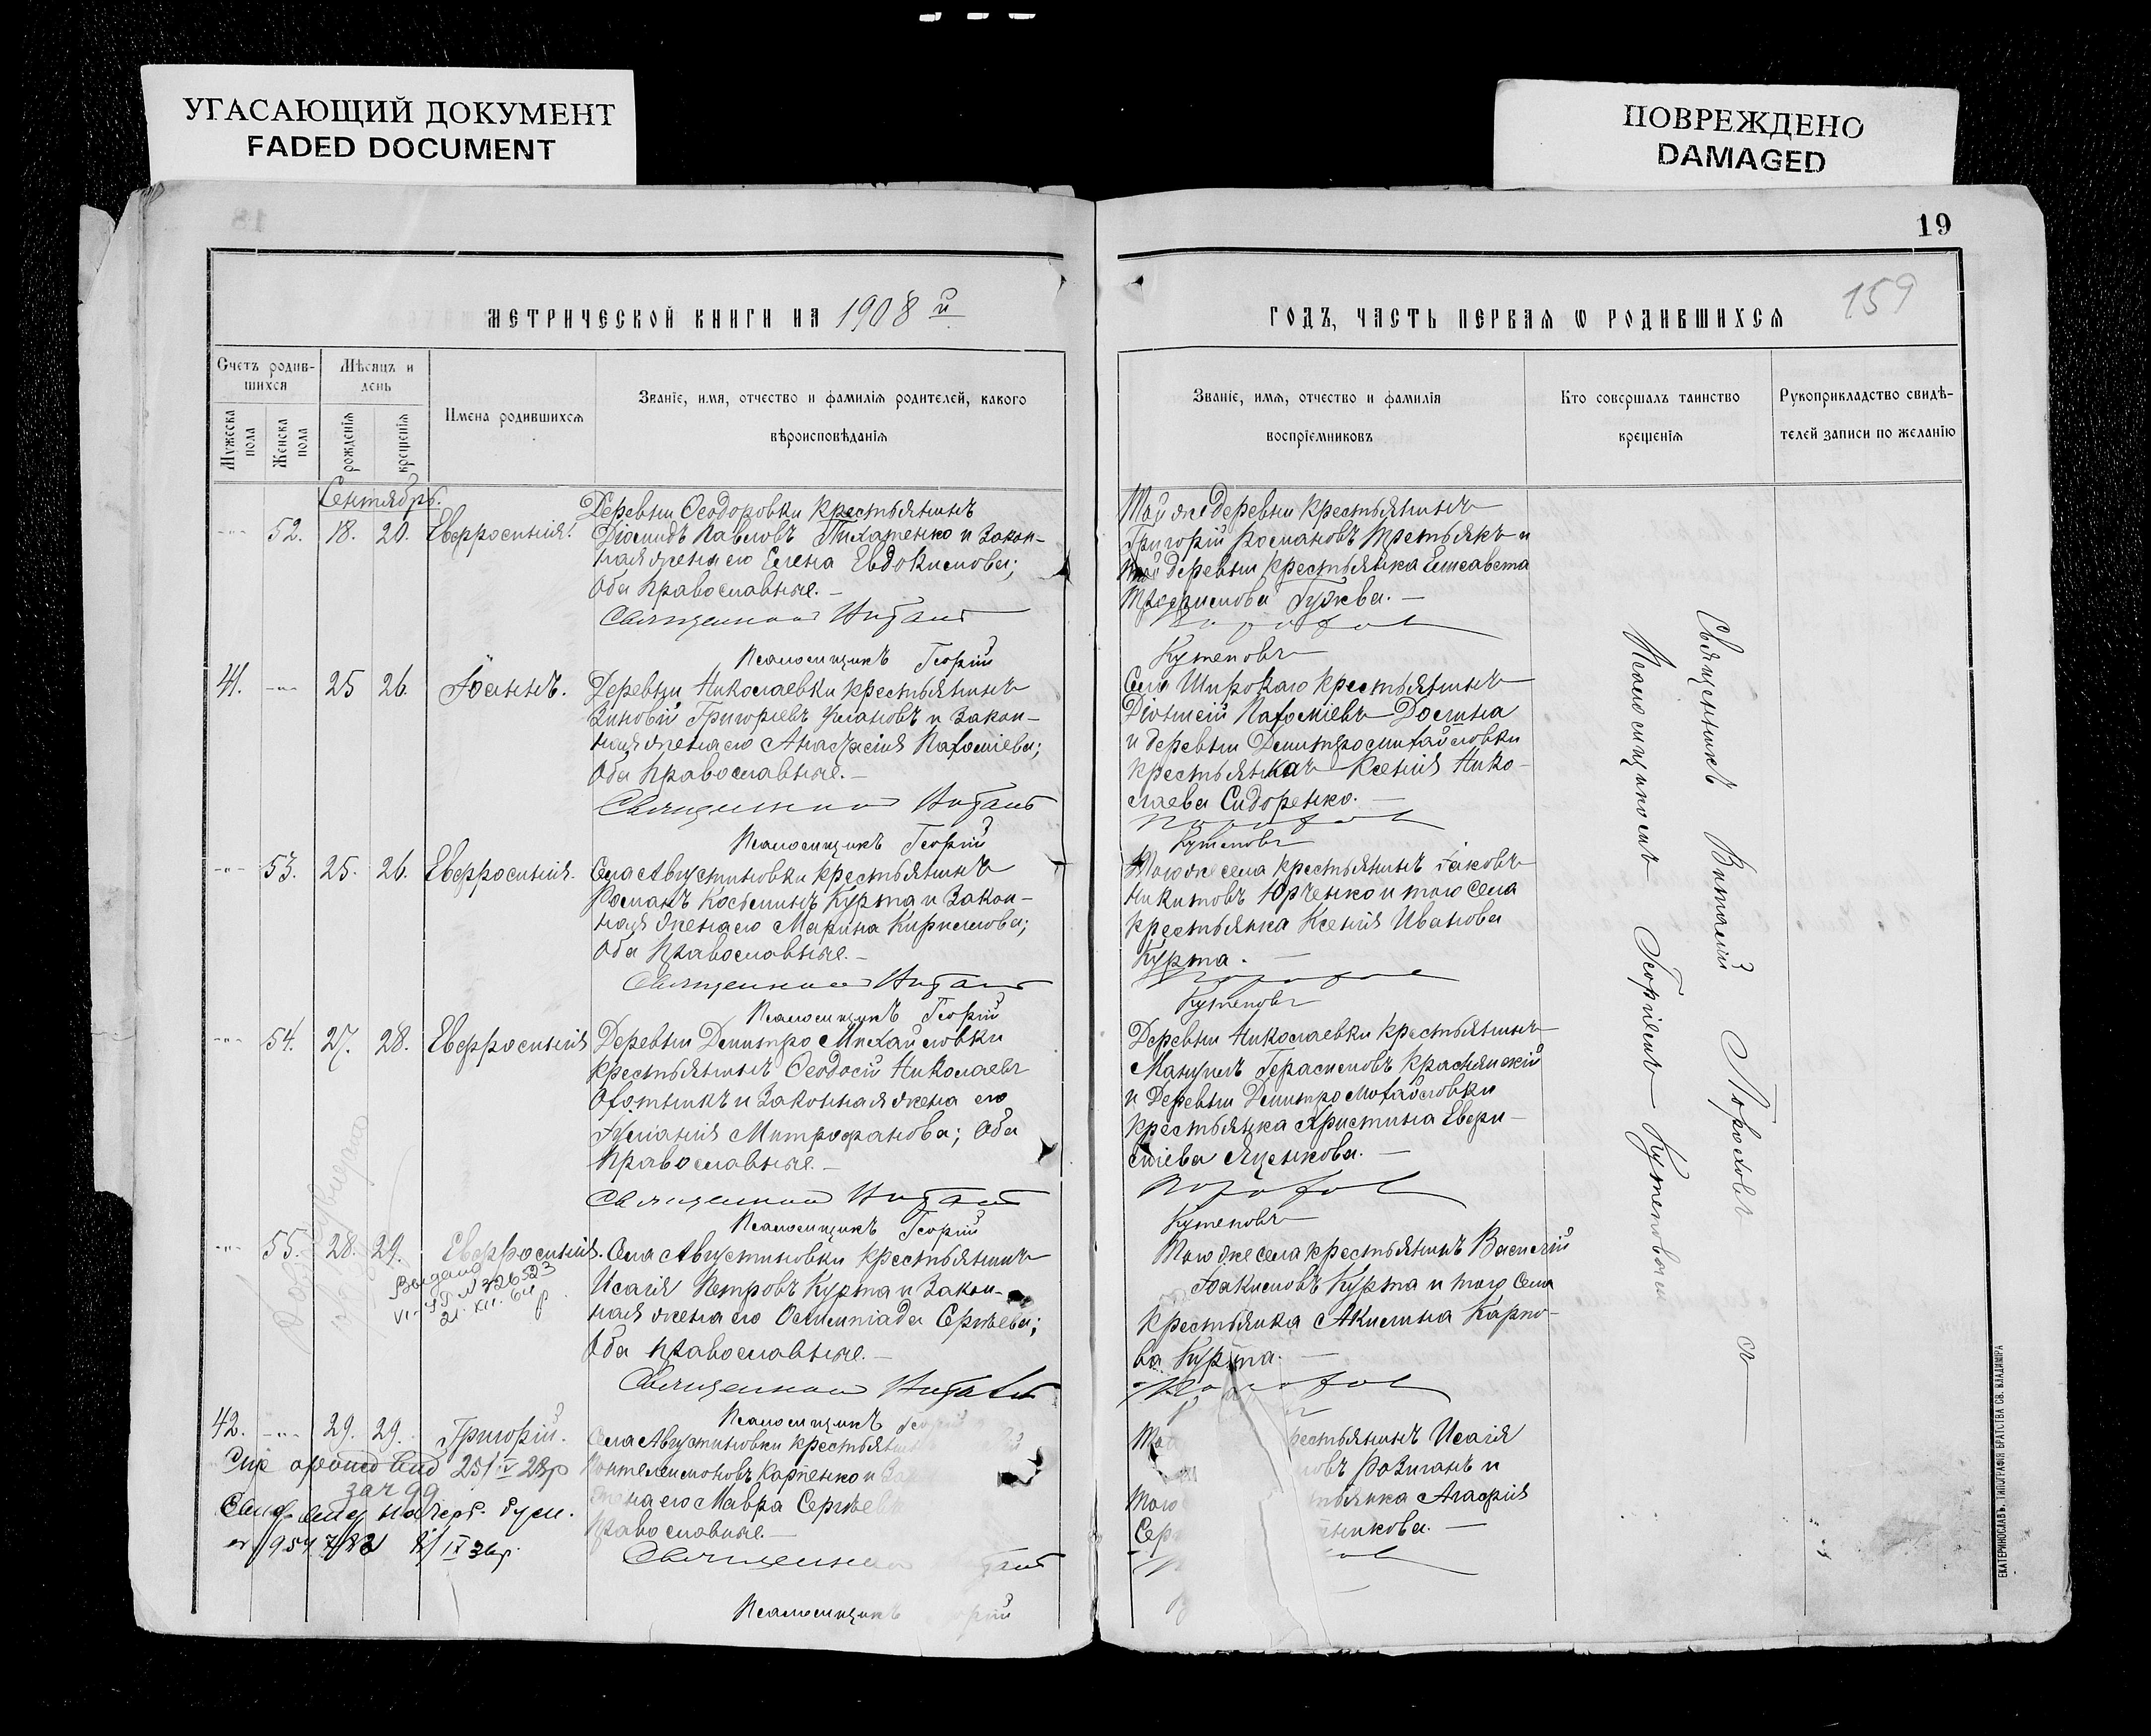 УГАСАЮЩИЙ ДОКУМЕНТ
FADED DOCUMENT
ПОВРЕЖДЕНО
DAMAGED
19
159
МЕТРИЧЕСКОЙ КНИГИ НА 1908 й
ГОДЪ, ЧАСТЬ ПЕРВАЯ Ѡ РОДИВШИХСЯ
Счетъ родив-
шихся
Мѣсяцъ и
день
Мужеска
пола
Женска
пола
рожденія
крещенія
Имена родившихся
Званіе, имя, отчество и фамилія родителей, какого
вѣроисповѣданія
Званіе, имя, отчество и фамилія
воспріемниковъ
Кто совершалъ таинство
крещенія
Рукоприкладство свидѣ-
телей записи по желанію
Сентябрь.
52. 18. 20. Евфросинія.
Деревни Ѳеодоровки крестьянинъ
Діомидъ Павловъ Тихатенко и закон-
ная жена его Елена Евдокимова;
оба православные.
Священник Витал
Псаломщикъ Георгій
Той же деревни крестьянинъ
Григорій Романовъ Третьякъ и
той деревни крестьянка Елисавета
Трофимова Гужва.
Порохов
Кутеповъ
41. 25 26. Іоаннъ.
Деревни Николаевки крестьянинъ
Зиновій Григорьевъ Улановъ и закон-
ная жена его Анастасія Пахоміева;
оба православные.
Священник Витал
Псаломщикъ Георгій
Села Широкаго крестьянинъ
Діонисій Пахоміевъ Домина
и деревни Димитромихайловки
крестьянка Ксенія Нико-
лаева Сидоренко.
Порохов
Кутеповъ
53. 25. 26. Евфросинія.
Села Августиновки крестьянинъ
Романъ Косьминъ Курта и закон-
ная жена его Марина Кириллова;
оба православные.
Священник Витал
Псаломщикъ Георгій
Того же села крестьянинъ Іаковъ
Никитовъ Юрченко и того села
крестьянка Ксенія Иванова
Курта.
Порохов
Кутеповъ
54. 27. 28. Евфросинія
Деревни Димитро Михайловки
крестьянинъ Ѳеодосій Николаевъ
Охотникъ и законная жена его
Іуліанія Митрофанова; оба
православные.
Священник Витал
Псаломщикъ Георгій
Деревни Николаевки крестьянинъ
Мануилъ Герасимовъ Краснянскій
и деревни Димитромихайловки
крестьянка Христина Евфи-
міева Яценкова.
Порохов
Кутеповъ
55. 28. 29. Евфросинія.
Выдано
21. XII. 64
Села Августиновки крестьянинъ
Исаія Петровъ Курта и закон-
ная жена его Олимпіада Сергѣева;
оба православные.
Священник Витал
Псаломщикъ Георгій
Того же села крестьянинъ Василій
Іоакимовъ Курта и того села
крестьянка Акилина Карпо-
ва Курта.
Порохов
42. 29. 29. Григорій.
Села Августиновки крестьянин
Пантелеимоновъ Карпенко и
жена его Мавра Сергѣев
православные.
Священник
Псаломщикъ
крестьянинъ Исаія
и
Того Агафія
Сер
Священникъ Виталій Пороховъ
Псаломщикомъ Георгіемъ Кутеповымъ
ЕКАТЕРИНОСЛАВЪ. ТИПОГРАФІЯ БРАТСТВА СВ. ВЛАДИМІРА